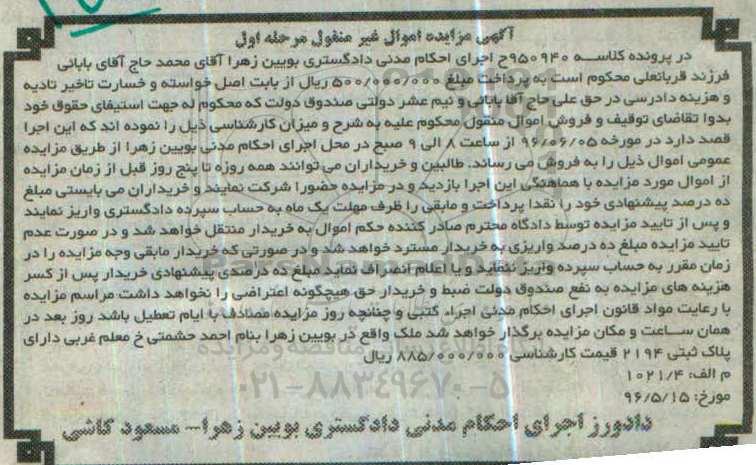 آگهی مزایده اموال غیر منقول مرحله اول
در پرونده کلاسه ۹۵۰۹۴۰ح اجرای احکام مدنی دادگستری بویین زهرا آقای محمد حاج آقای بابائی
فرزند قربانعلی محکوم است به پرداخت مبلغ ۵۰۰/۰۰۰/۰۰۰ ریال از بابت اصل خواسته و خسارت تاخیر تادیه
و هزینه دادرسی در حق علی حاج آقا بابائی و نیم عشر دولتی صندوق دولت که محکوم له جهت استیفای حقوق خود
بدوا تقاضای توقیف و فروش اموال منقول محکوم علیه به شرح و میزان کارشناسی ذیل را نموده اند که این اجرا
قصد دارد در مورخه ۹۶/۰۶/۰۵ از ساعت ۸ الی ۹ صبح در محل اجرای احکام مدنی بویین زهرا از طریق مزایده
عمومی اموال ذیل را به فروش می رساند. طالبین و خریداران می توانند همه روزه تا پنج روز قبل از زمان مزایده
از اموال مورد مزایده با هماهنگی این اجرا بازدید و در مزایده حضورا شرکت نمایند و خریداران می بایستی مبلغ
ده درصد پیشنهادی خود را نقدا پرداخت و مابقی را ظرف مهلت یک ماه به حساب سپرده دادگستری واریز نمایند
و پس از تایید مزایده توسط دادگاه محترم صادر کننده حکم اموال به خریدار منتقل خواهد شد و در صورت عدم
تایید مزایده مبلغ ده درصد واریزی به خریدار مسترد خواهد شد و در صورتی که خریدار مابقی وجه مزایده را در
زمان مقرر به حساب سپرده واریز ننماید و یا اعلام انصراف نماید مبلغ ده درصدی پیشنهادی خریدار پس از کسر
هزینه های مزایده به نفع صندوق دولت ضبط و خریدار حق هیچگونه اعتراضی را نخواهد داشت مراسم مزایده
با رعایت مواد قانون اجرای احکام مدنی اجراء گتبی و چنانچه روز مزایده مصادف با ایام تعطیل باشد روز بعد در
همان ساعت و مکان مزایده برگذار خواهد شد ملک واقع در بویین زهرا بنام احمد حشمتی خ معلم غربی دارای
پلاک ثبتی ۲۱۹۴ قیمت کارشناسی ۸۸۵/۰۰۰/۰۰۰ ریال
م الف: ۱۰۲۱/۴
۰۲۱-۸۸۳۴۹۶۷۰-۵
مورخ: ۹۶/۵/۱۵
دادورز اجرای احکام مدنی دادگستری بویین زهرا- مسعود کاشی